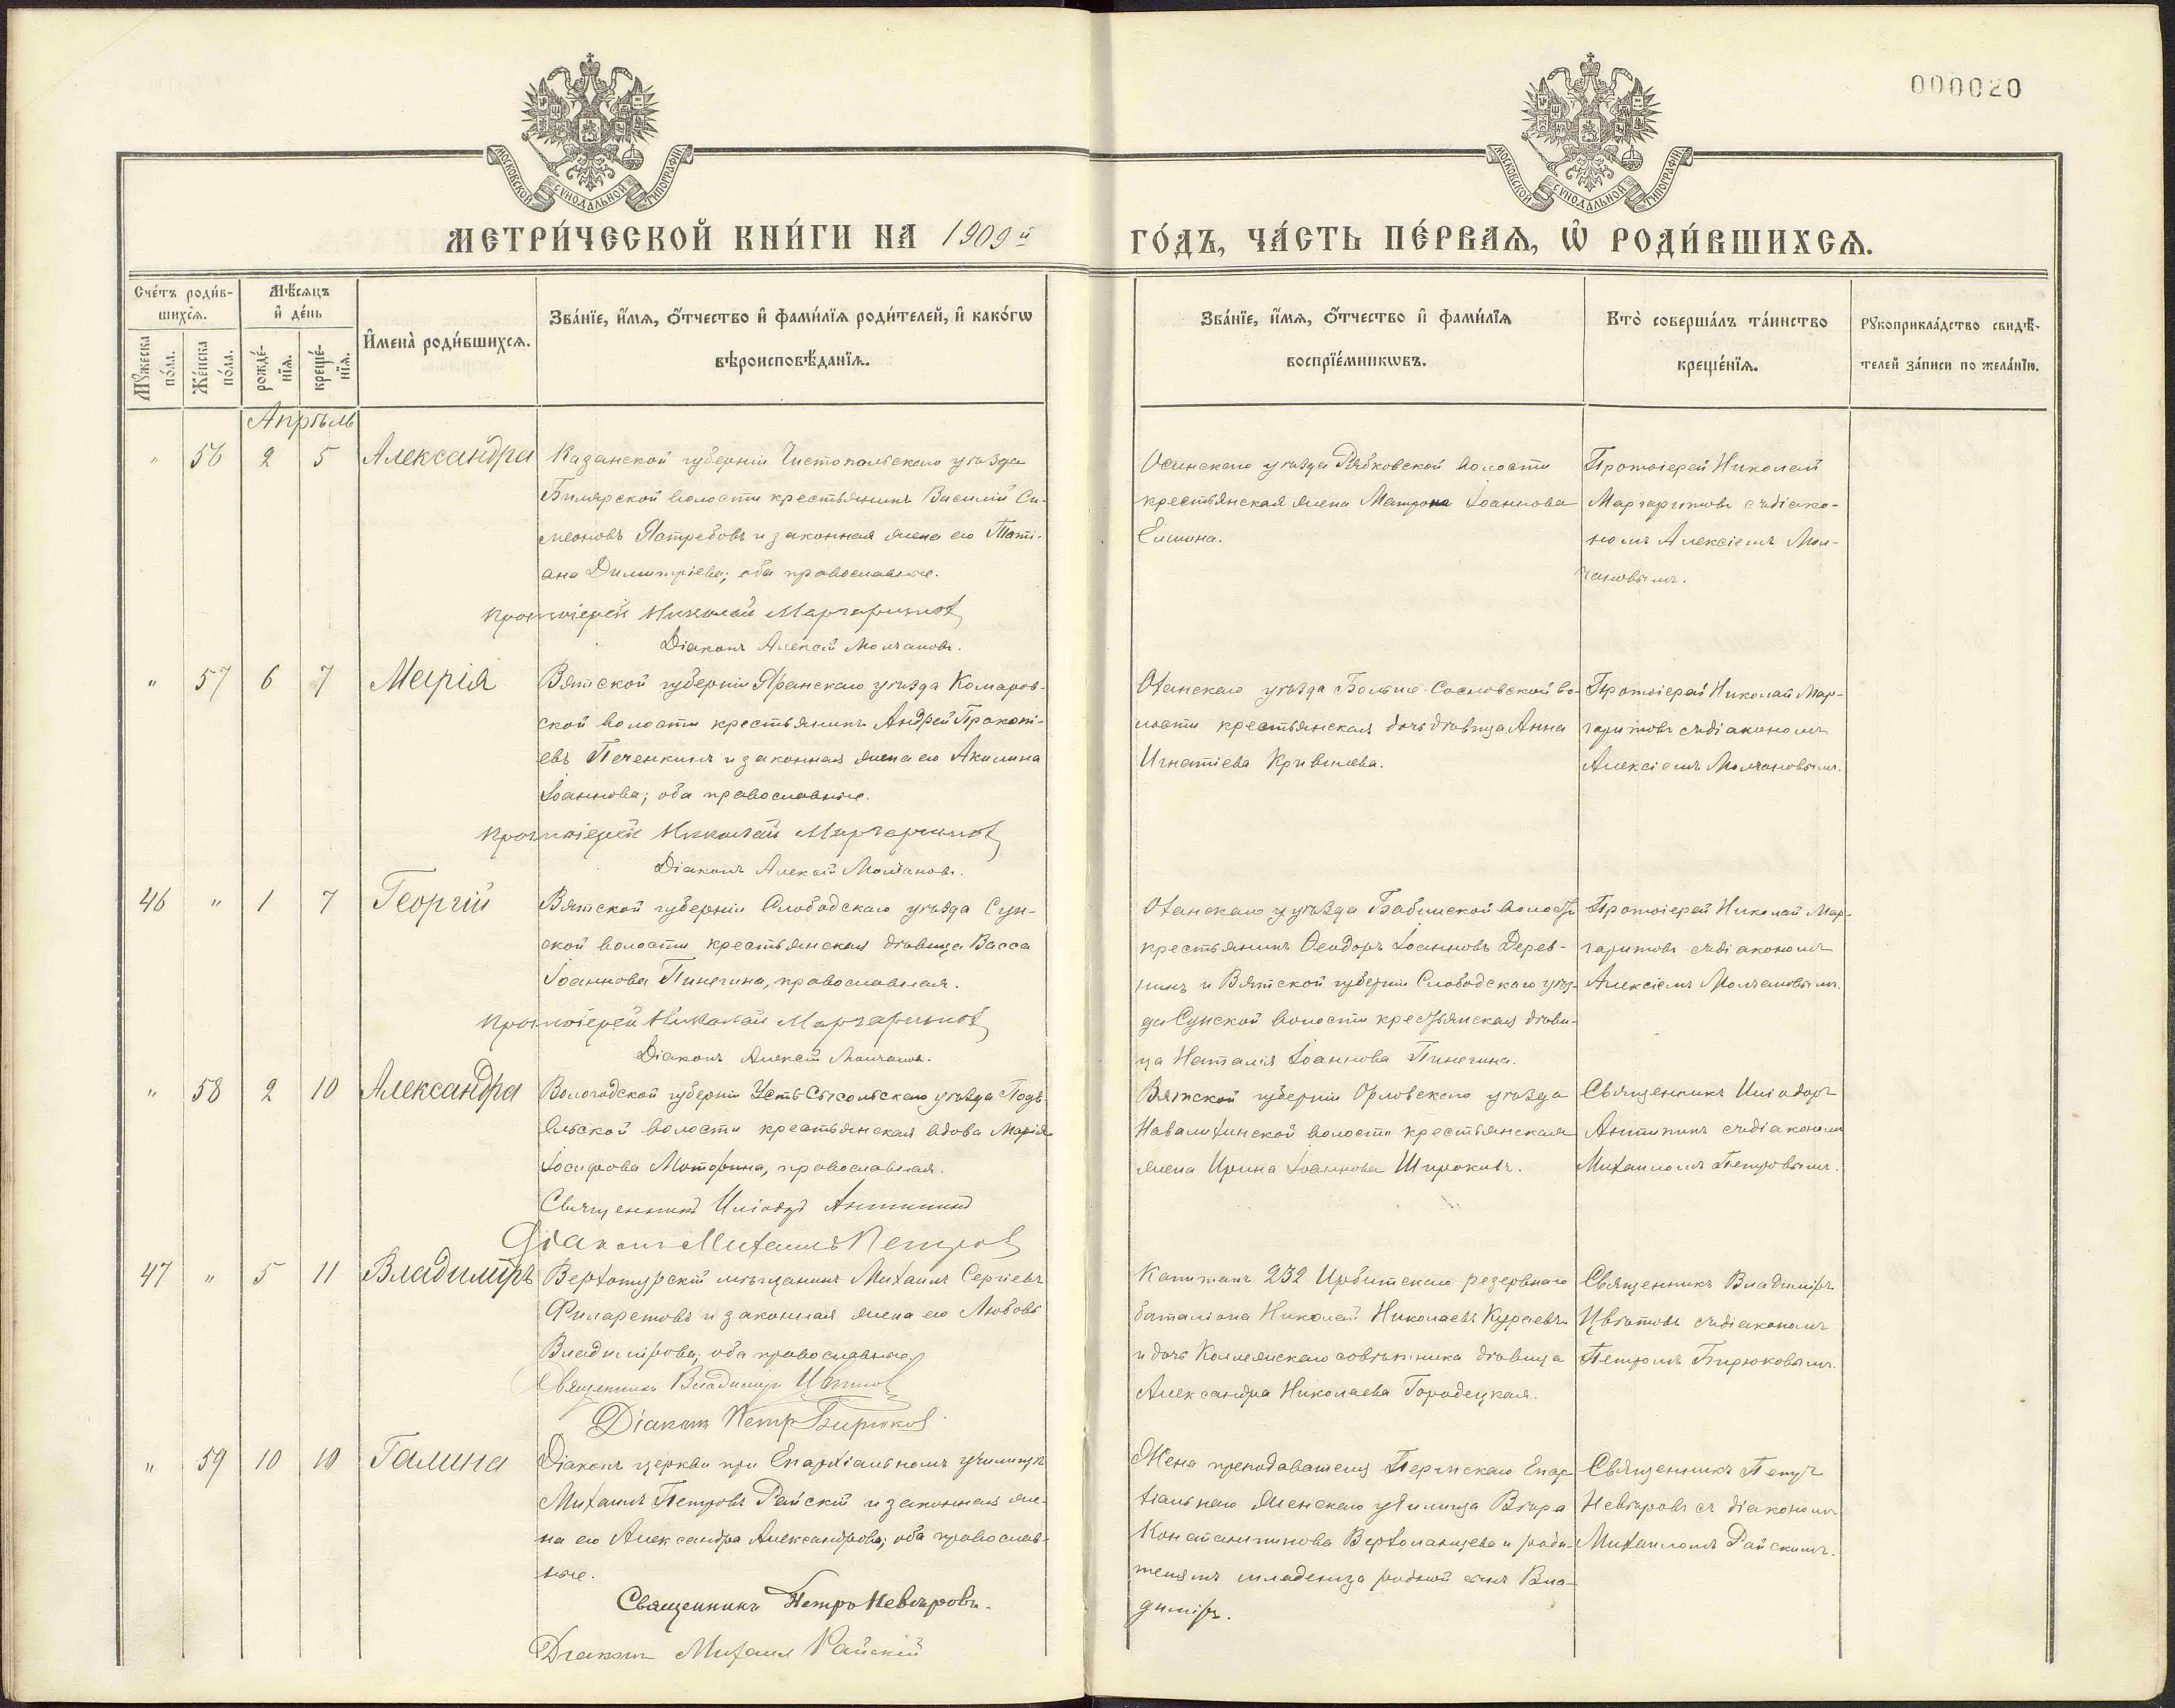 000020
МОСКОВСКОЙ СѴНОДАЛЬНОЙ ТИПОГРАФІИ
МОСКОВСКОЙ СѴНОДАЛЬНОЙ ТИПОГРАФІИ
МЕТРИ́ЧЕСКОЙ КНИ́ГИ НА 1909й ГО́ДЪ, ЧА́СТЬ ПЕ́РВАѦ, Ѡ҆ РОДИ́ВШИХСѦ.
Сче́тъ роди́в-
шихсѧ.
Мꙋ́жеска
по́ла.
Же́нска
по́ла.
Мѣ́сяцъ
и҆ де́нь
рожде́-
нїѧ.
креще́-
нїѧ.
И҆мена̀ роди́вшихсѧ.
Зва́нїе, и҆́мѧ, ѻ҆́тчество и҆ фами́лїѧ роди́телей, и҆ како́гѡ
вѣроисповѣ́данїѧ.
Зва́нїе, и҆́мѧ, ѻ҆́тчество и҆ фами́лїѧ
воспрїе́мникѡвъ.
Кто̀ соверша́лъ та́инство
креще́нїѧ.
Рꙋкоприкла́дство свидѣ́-
телей за́писи по жела́нїю.
Апрѣль
" 56 2 5 Александра
Казанской губерніи Чистопольскаго уѣзда
Билярской волости крестьянинъ Василій Си-
меоновъ Ястребовъ и законная жена его Тати-
ана Димитріева; оба православные.
Протоіерей Николай Маргаритов
Діаконъ Алексѣй Молчановъ.
Осинскаго уѣзда Рябковской волости
крестьянская жена Матрона Іоаннова
Елшина.
Протоіерей Николай
Маргаритовъ съ діако-
номъ Алексіемъ Мол-
чановымъ.
" 57 6 7 Марія
Вятской губерніи Яранскаго уѣзда Комаров-
ской волости крестьянинъ Андрей Прокопі-
евъ Печенкинъ и законная жена его Акилина
Іоаннова; оба православные.
Протоіерей Николай Маргаритов
Діаконъ Алексѣй Молчановъ.
Оханскаго уѣзда Больше-Сосновской во-
лости крестьянская дочь дѣвица Анна
Игнатіева Кривилева.
Протоіерей Николай Мар-
гаритовъ съ діакономъ
Алексіемъ Молчановымъ.
46 " 1 7 Георгій
Вятской губерніи Слободскаго уѣзда Сун-
ской волости крестьянская дѣвица Васса
Іоаннова Пинегина, православная.
Протоіерей Николай Маргаритов
Діаконъ Алексѣй Молчановъ.
Оханскаго уѣзда Бабинской волости
крестьянинъ Ѳеодоръ Іоанновъ Дерев-
нинъ и Вятской губерніи Слободскаго уѣз-
да Сунской волости крестьянская дѣви-
ца Наталія Іоаннова Пинегина.
Протоіерей Николай Мар-
гаритовъ съ діакономъ
Алексіемъ Молчановымъ.
" 58 2 10 Александра
Вологодской губерніи Усть-Сысольскаго уѣзда Подъ-
ельской волости крестьянская вдова Марія
Іосифова Моторина, православная.
Священникъ Исидоръ Антипинъ
Діаконъ Михаилъ Петров
Вятской губерніи Орловскаго уѣзда
Навалихинской волости крестьянская
жена Ирина Іоаннова Широкихъ.
Священникъ Исидоръ
Антипинъ съ діакономъ
Михаиломъ Петровымъ.
47 " 5 11 Владиміръ
Верхотурскій мѣщанинъ Михаилъ Сергіевъ
Филаретовъ и законная жена его Любовь
Владимірова; оба православные
Священникъ Владиміръ Цвѣтов
Діаконъ Петр Бирюков
Капитанъ 232 Ирбитскаго резервнаго
баталіона Николай Николаевъ Кураевъ
и дочь Коллежскаго совѣтника дѣвица
Александра Николаева Городецкая.
Священникъ Владиміръ
Цвѣтовъ съ діакономъ
Петромъ Бирюковымъ.
" 59 10 10 Галина
Діаконъ церкви при Епархіальномъ училищѣ
Михаилъ Петровъ Райскій и законная же-
на его Александра Александрова; оба православ-
ные.
Священникъ Петръ Невѣровъ.
Діаконъ Михаил Райскій
Жена преподавателя Пермскаго Епар-
хіальнаго женскаго училища Вѣра
Константинова Верхоланцева и роди-
телямъ младенца родной сынъ Вла-
диміръ.
Священникъ Петръ
Невѣровъ съ діакономъ
Михаиломъ Райскимъ.